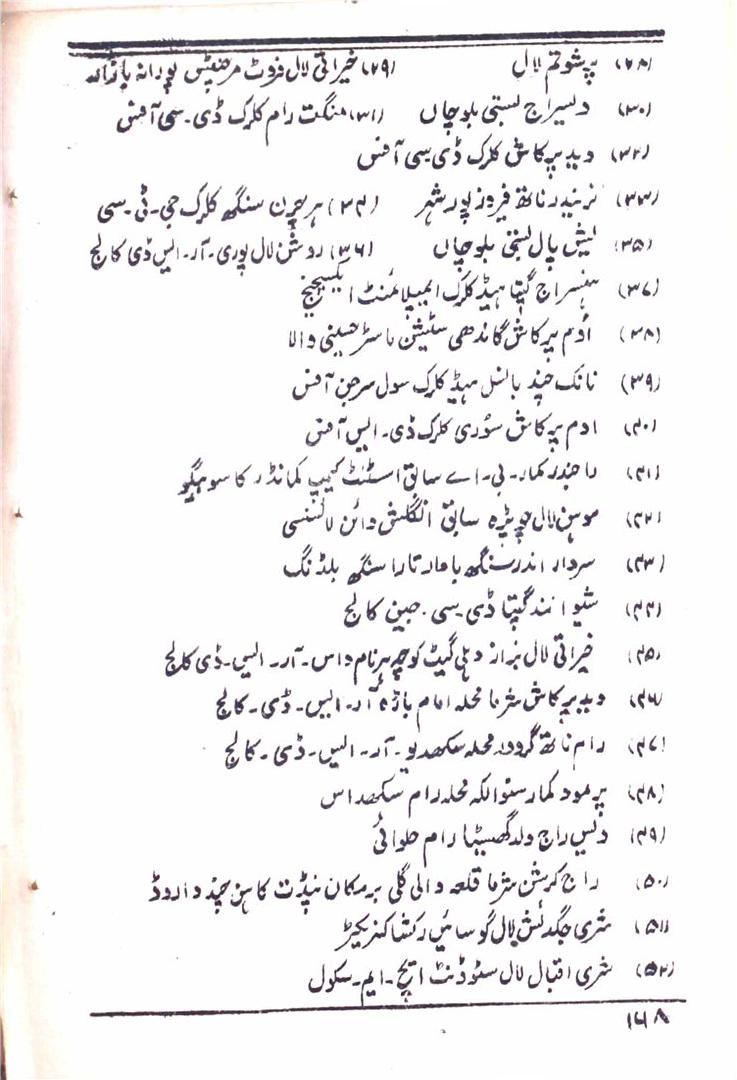 (۲۸) پرشوتم لال (۲۹) خیراتی لال فروٹ مرچنٹس پورانہ بازار
(۳۰) دیسراج بستی بلوچاں (۳۱) منگت رام کلرک ڈی۔سی آفس
(۳۲) وید پرکاش کلرک ڈی سی آفس
(۳۳) نریندر ناتھ فیروز پور شہر (۳۴) ہرچرن سنگھ کلرک جی۔ٹی۔سی
(۳۵) یش پال بستی بلوچاں (۳۶) روشن لال پوری۔آر۔ایس ڈی کالج
(۳۷) ہنسراج گپتا ہیڈ کلرک ایمپلائمنٹ ایکسچینج
(۳۸) اوم پرکاش گاندھی سٹیشن ماسٹر حسینی والا
(۳۹) نانک چند بانسل ہیڈ کلرک سول سرجن آفس
(۴۰) اوم پرکاش سوری کلرک ڈی۔ایس آفس
(۴۱) راجندر کمار۔بی۔اے سابق اسسٹنٹ کیمپ کمانڈر کاسوبیگو
(۴۲) موہن لال چوپڑہ سابق انگلش وائن لائسنسی
(۴۳) سردار اندر سنگھ باھار تارا سنگھ بلڈنگ
(۴۴) شیوا نند گپتا ڈی۔سی۔جین کالج
(۴۵) خیراتی لال بزاز دہلی گیٹ کوچہ ہرنام داس۔آر۔ایس۔ڈی کالج
(۴۶) وید پرکاش شرما محلہ امام باڑہ آر۔ایس۔ڈی۔کالج
(۴۷) رام ناتھ گروور محلہ سکھدیو۔آر۔ایس۔ڈی۔کالج
(۴۸) پرمود کمار محلہ رام سکھداس
(۴۹) دیس راج ولد گھسیٹا رام حلوائی
(۵۰) راج کرشن شرما قلعہ والی گلی برمکان پنڈت کاہن چند وارڈ
(۵۱) شری جگدیش لال گوسائیں رکشا کنریکٹر
(۵۲) شری اقبال لال سٹوڈنٹ ایچ۔ایم۔سکول
۱۶۸